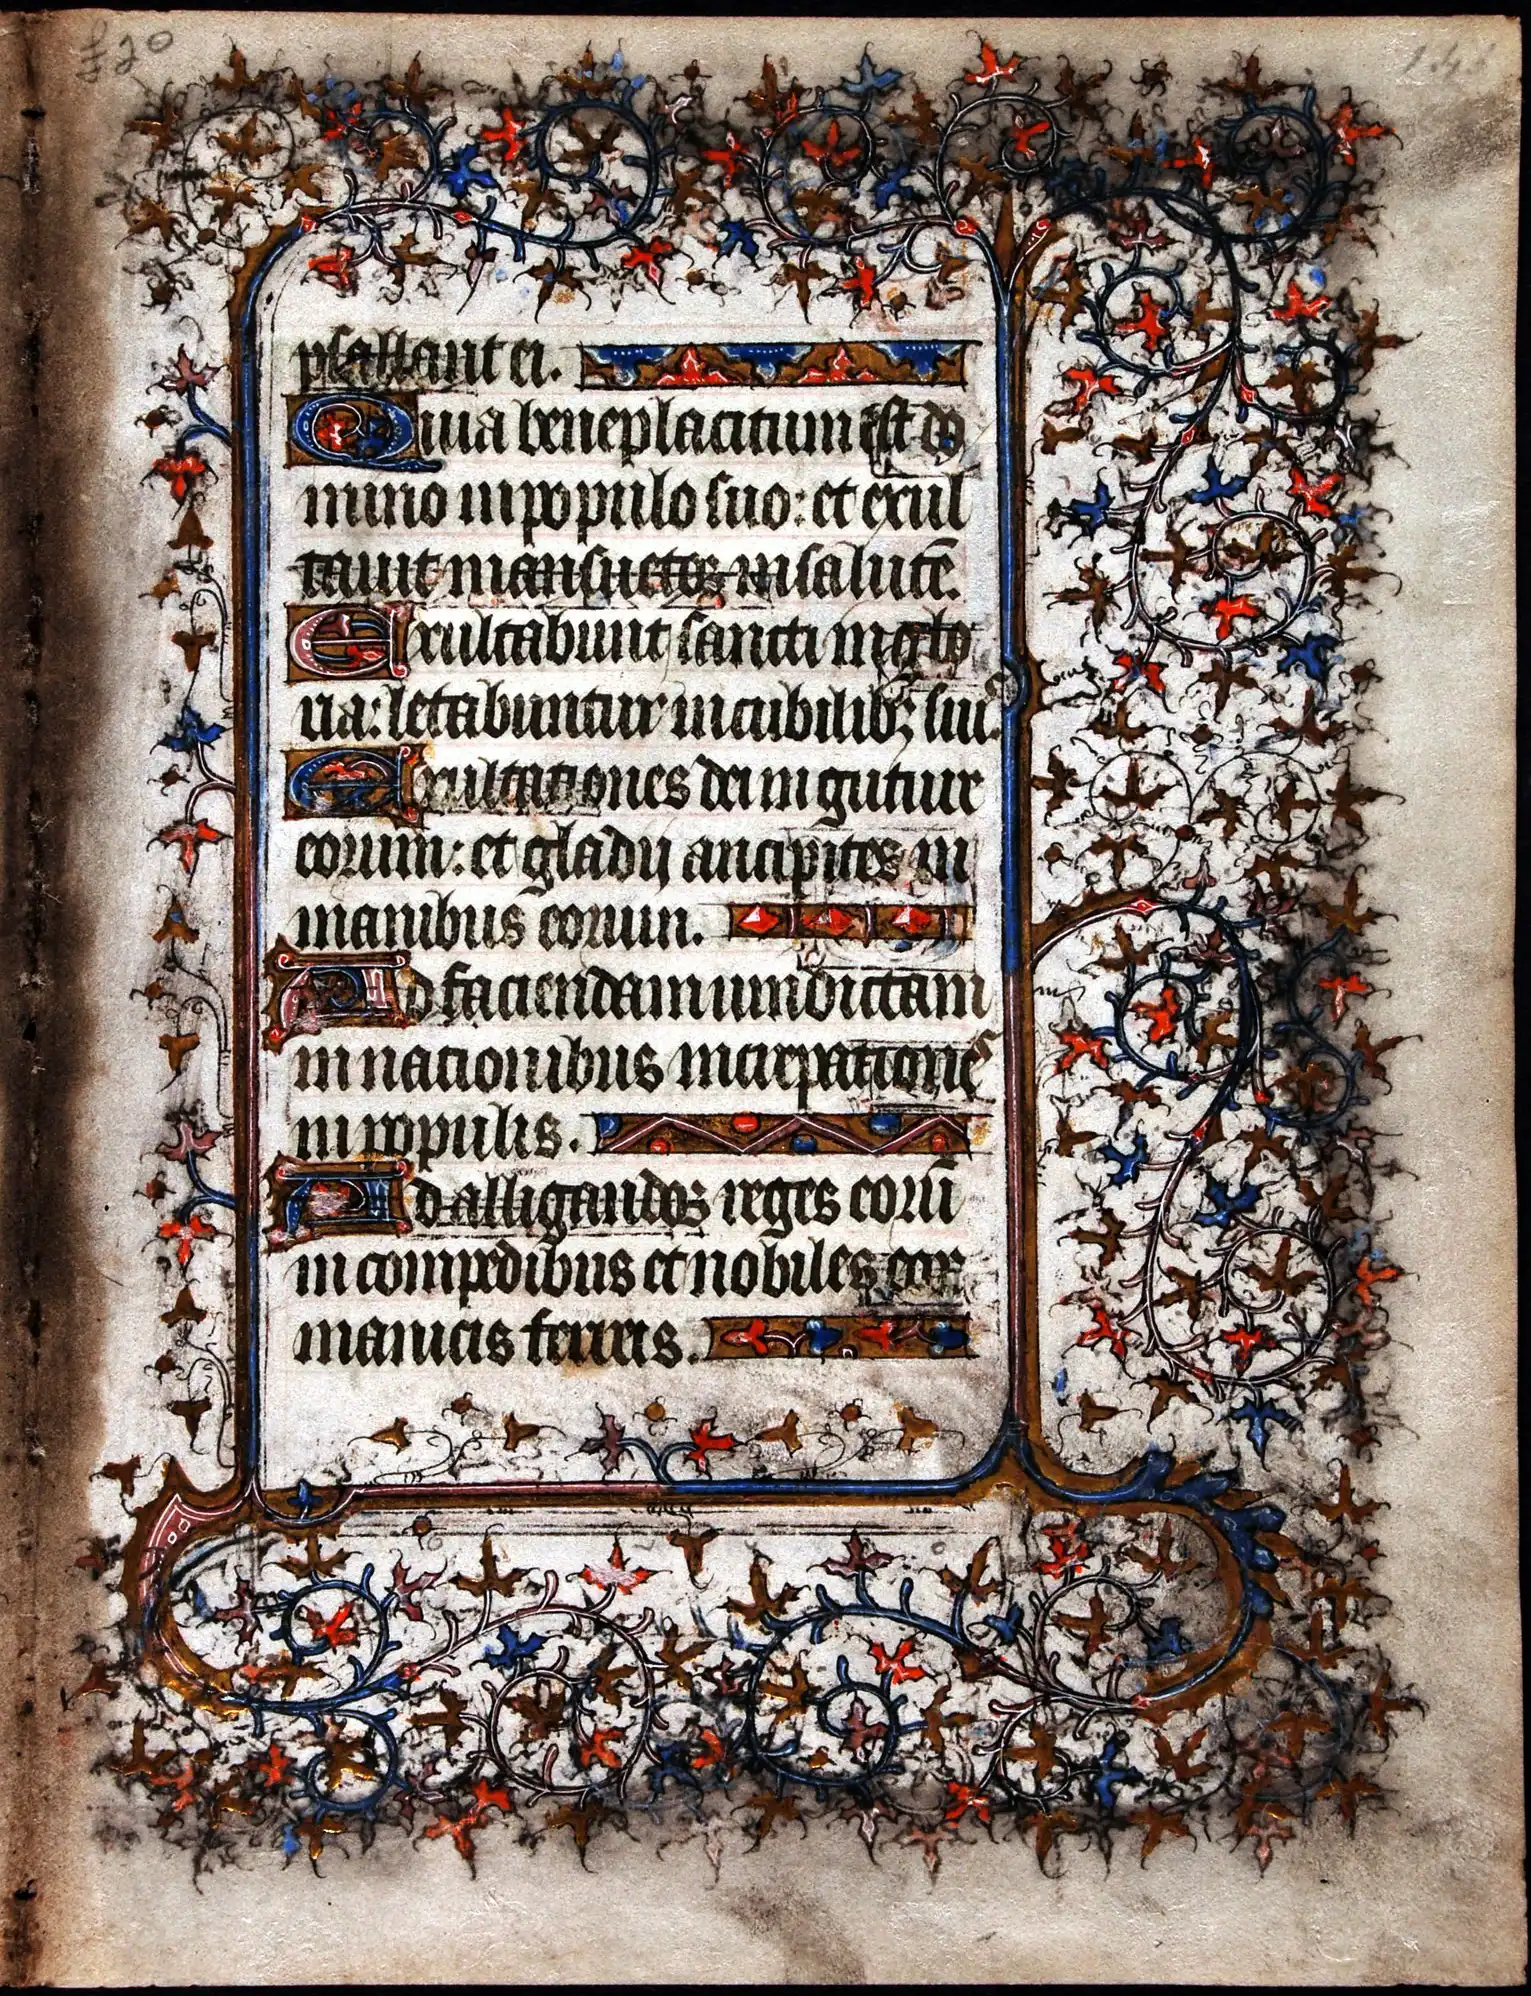 £20
psallant ei.
Quia beneplacitum est do
mino in populo suo: et exul
tavit mansuetos in salutē.
Exultabunt sancti in glo
ria: letabuntur in cubilibꝫ suis.
Exultationes dei in gutture
eorum: et gladij ancipites in
manibus eorum.
Ad faciendam vindictam
in nacionibus increpationes
in populis.
Ad alligandos reges eorū
in compedibus et nobiles eorꝝ
manicis ferreis.